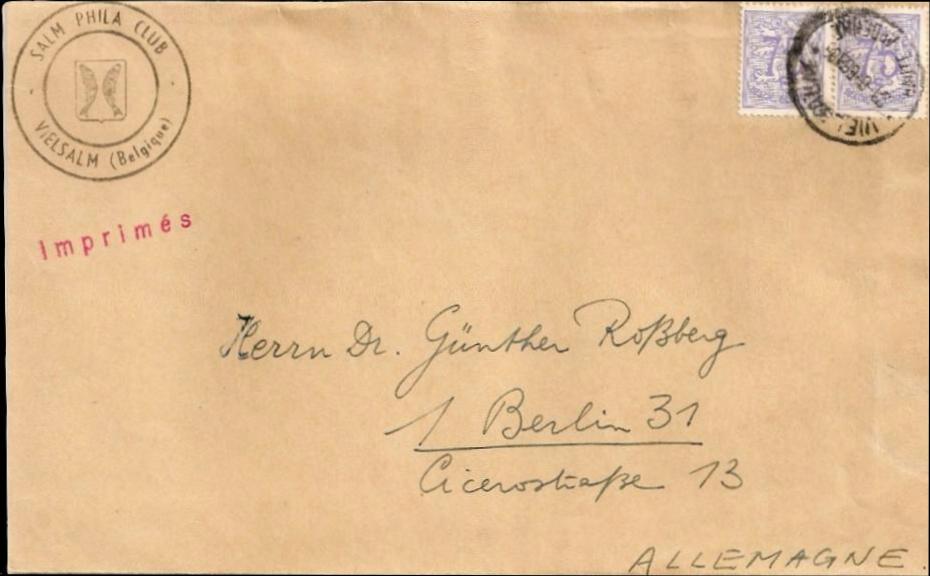 SALM PHILA CLUB
VIELSALM (Belgique)
Imprimés
75
Herrn Dr. Günther Roßberg
1 Berlin 31
Cicerostraße 13
ALLEMAGNE.